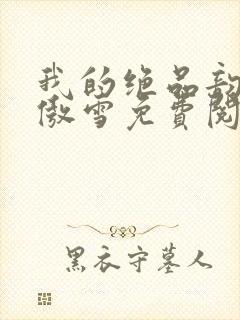 我的绝品
傲雪免費閱
黑衣守墓人